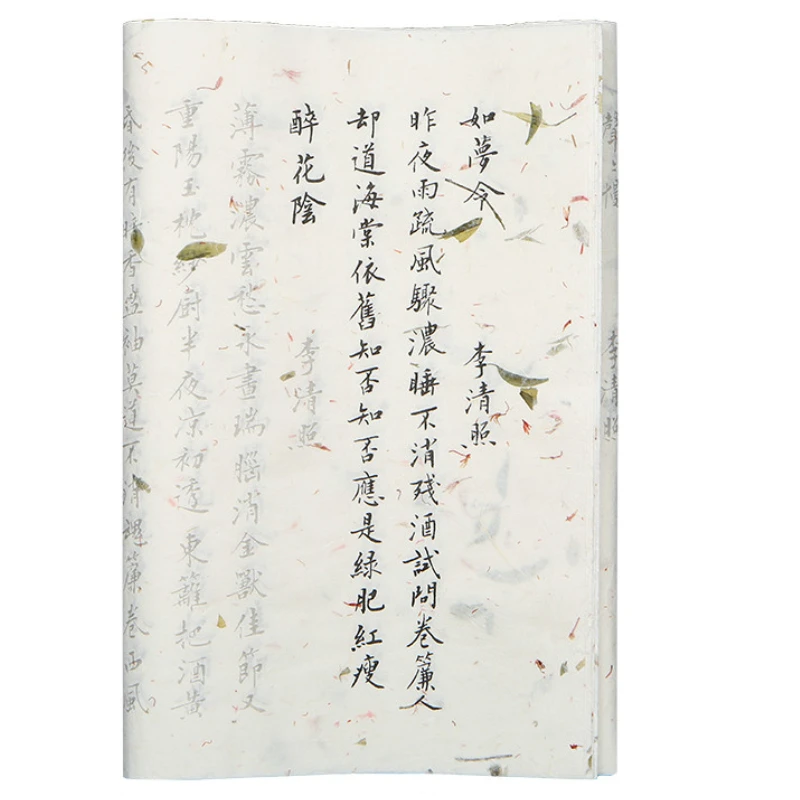 聲 慢
李清照
如夢令
李清照
昨夜雨疏風驟濃睡不消残酒試問卷簾人
却道海棠依舊知否知否應是緑肥紅瘦
醉花陰
李清照
薄霧濃雲愁永晝瑞腦消金獸佳節又
重陽玉枕紗厨半夜凉初透東籬把酒黄
昏後有暗香盈袖莫道不消魂簾卷西風